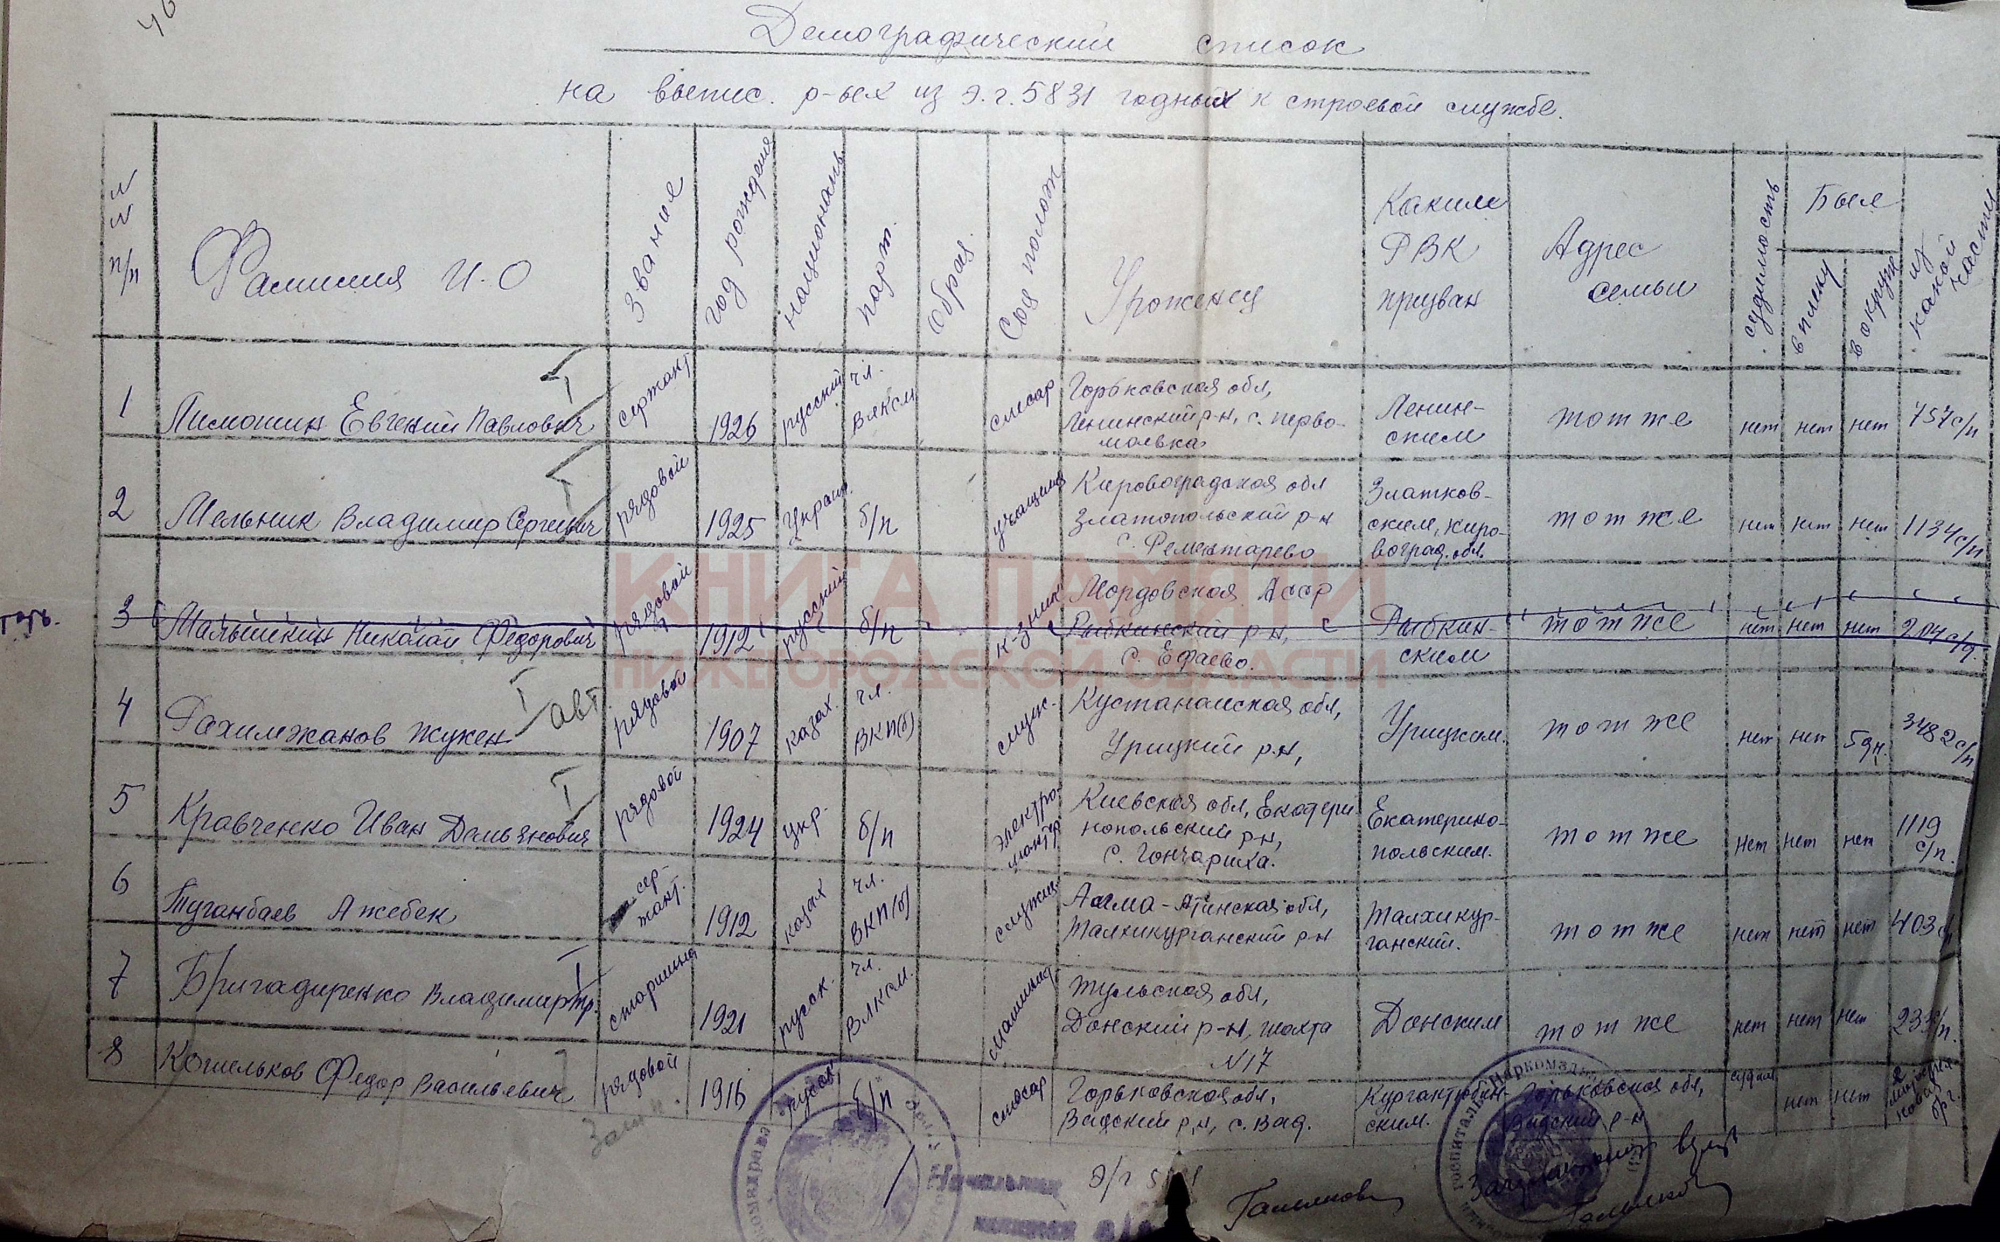 Демографический список
на выпис. р-ых из э.г. 5831 годных к строевой службе.
№ № п/п
Фамилия И.О
Звания
год рождения
национальн.
парт.
образ.
Соц полож
Уроженец
Каким РВК призван
Адрес семьи
судимость
Был
в плену
в окруж
из какой части
1 Тимошин Евгений Павлович сержант 1926 русский чл. ВЛКСМ слесар Горьковская обл, Ленинский р-н, с. Первомаевка Ленинским тот же нет нет нет 757 с/п
2 Мельник Владимир Сергеевич рядовой 1925 Украин. б/п учащийся Кировоградская обл Златопольский р-н с. Рементарево Златковским, Кировоград. обл. тот же нет нет нет 1134 с/п
3 Малышкин Николай Федорович рядовой 1912 русский б/п к-зник Мордовская АССР Рыбкинский р-н, с. Ефаево. Рыбкинским тот же нет нет нет 204 с/п.
4 Рахимжанов Жукен авт. рядовой 1907 казах. чл. ВКП(б) служ. Кустанайская обл, Урицкий р-н, Урицким. тот же нет нет 5 дн. 3482 с/п
5 Кравченко Иван Демьянович рядовой 1924 укр. б/п электромонтр Киевская обл, Екатеринопольский р-н, с. Гончариха. Екатеринопольским. тот же нет нет нет 1119 с/п.
6 Туганбаев Ажебек сержант. 1912 казах чл. ВКП(б) служащ. Алма-Атинская обл, Талхикурганский р-н Талхикурганский. тот же нет нет нет 403
7 Бригадиренко Владимир Гр. старшина 1921 русск. чл. ВЛКСМ. машинист Тульская обл, Донский р-н, шахта №17 Донским тот же нет нет нет 233 с/п.
8 Кошельков Федор Васильевич рядовой. 1916 русск. б/п слесар Горьковская обл, Вадский р-н, с. Вад. Кургантюбинским. Горьковская обл, Вадский р-н судим нет нет
Начальник
э/г
КНИГА ПАМЯТИ
НИЖЕГОРОДСКОЙ ОБЛАСТИ